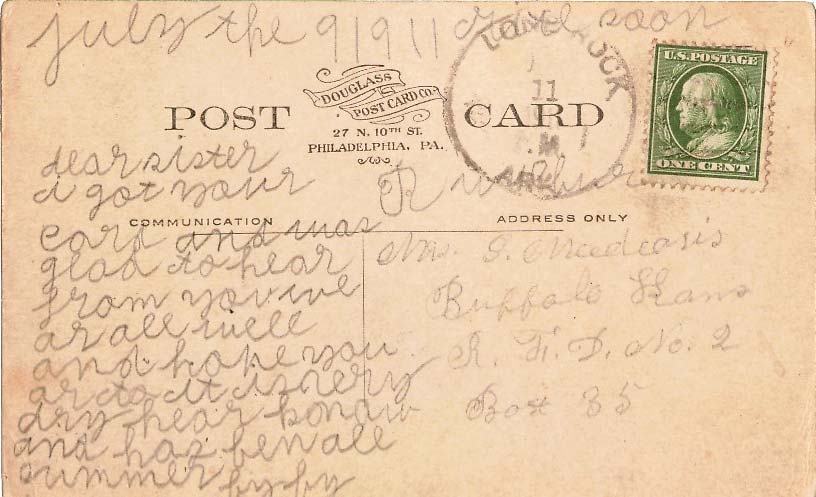 july the 9 1911 rite soon
DOUGLASS
POST CARD CO.
POST CARD
27 N. 10TH ST.
PHILADELPHIA, PA.
LONE ROCK
11
M
ARK
U.S. POSTAGE
ONE CENT
dear sister
i got your
COMMUNICATION
ADDRESS ONLY
card and was
glad to hear
from you we
ar all well
and hope you
ar to it is very
dry hear
and has ben all
summer by by
Mrs.
Buffalo Kans
R. F. D. No. 2
Box 85